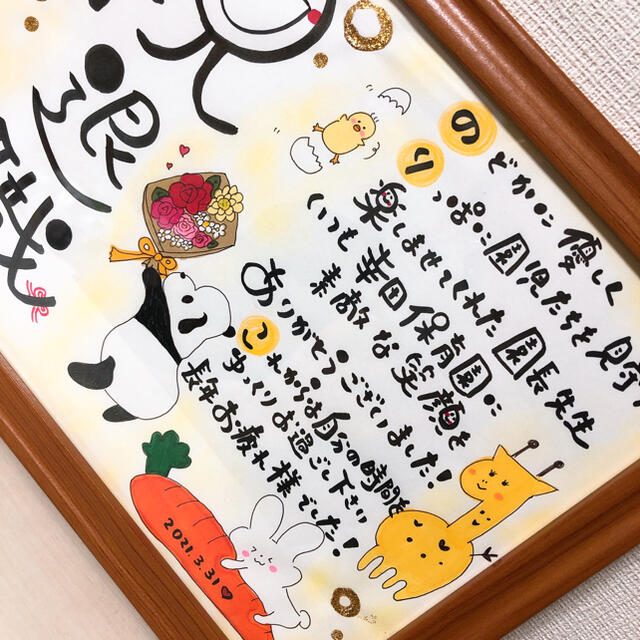 退職
のどかに優しく
りっぱに園児たちを見守り
楽しませてくれた園長先生
いつも幸田保育園に
素敵な笑顔を
ありがとうございました!
これからは自分の時間を
ゆっくりお過ごし下さい
長年お疲れ様でした!
2021.3.31